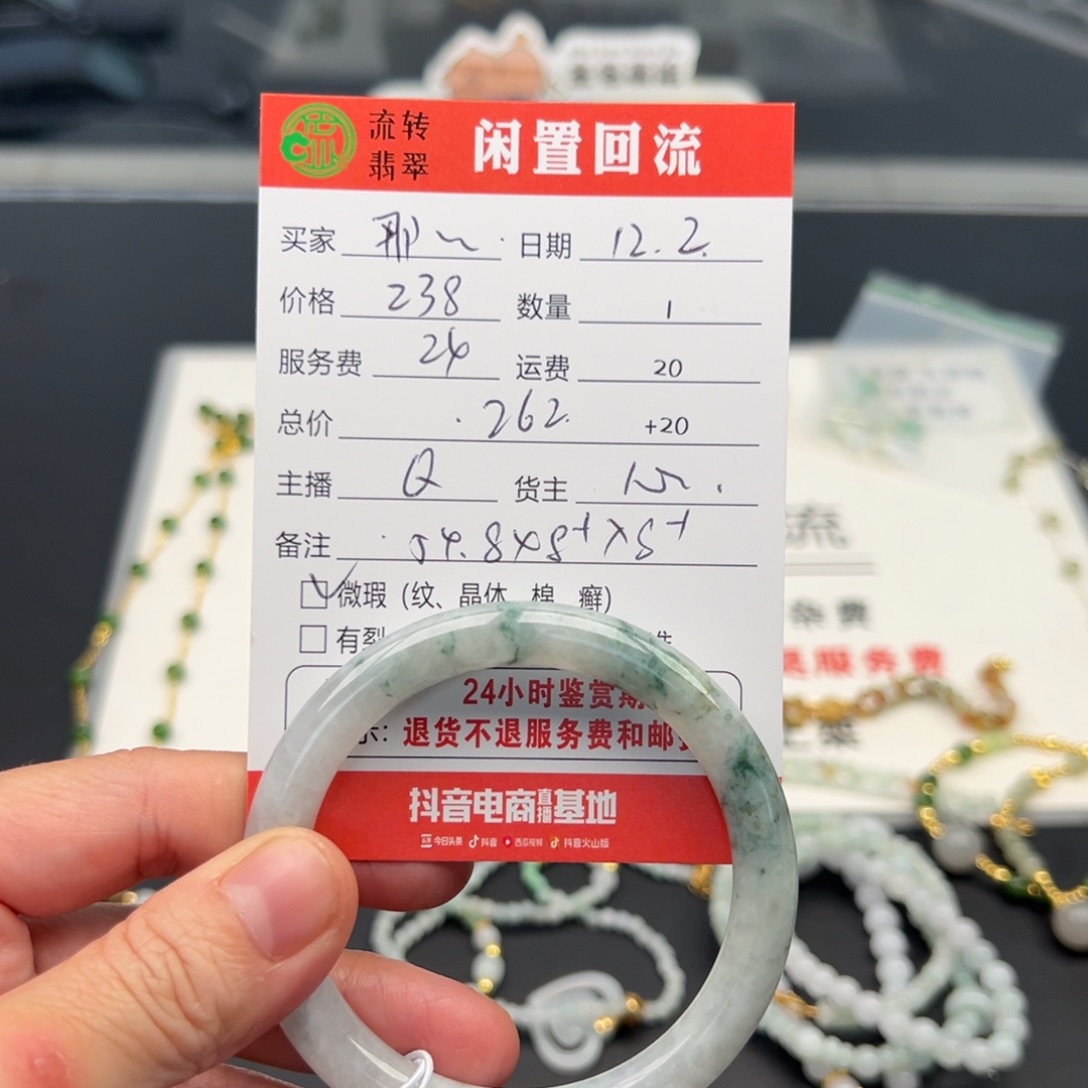 流转
翡翠
闲置回流
买家 那~ 日期 12.2.
价格 238 数量 1
服务费 24 运费 20
总价 262 +20
主播 Q 货主
备注 54.8×8+×8+
微瑕（纹、晶体、棉、癣）
有裂
24小时鉴赏期
示：退货不退服务费和邮费
抖音电商直播基地
今日头条 抖音 西瓜视频 抖音火山版
流
杂费
退服务费